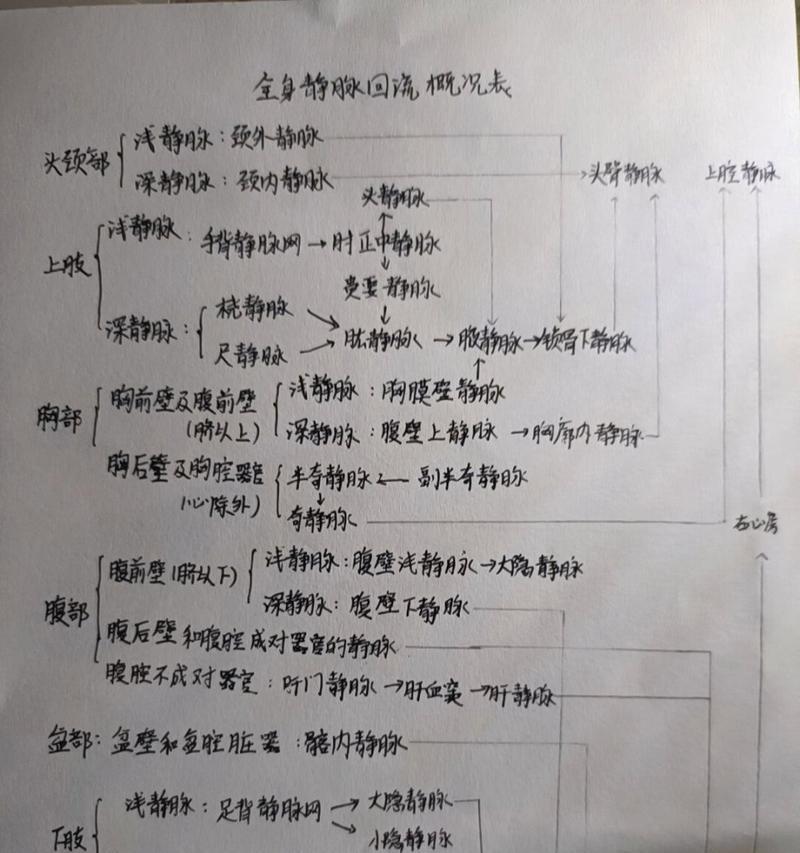 全身静脉回流概况表
头颈部
浅静脉：颈外静脉
深静脉：颈内静脉
头臂静脉
上腔静脉
头静脉
上肢
浅静脉：手背静脉网→肘正中静脉
贵要静脉
深静脉：
桡静脉
尺静脉
肱静脉→腋静脉→锁骨下静脉
胸部
胸前壁及腹前壁
（脐以上）
浅静脉：胸膜壁静脉
深静脉：腹壁上静脉→胸廓内静脉
胸后壁及胸腔器官
（心除外）
半奇静脉←副半奇静脉
奇静脉
右心房
腹部
腹前壁（脐以下）
浅静脉：腹壁浅静脉→大隐静脉
深静脉：腹壁下静脉
腹后壁和腹腔成对器官的静脉
腹腔不成对器官：肝门静脉→肝血窦→肝静脉
盆部：盆壁和盆腔脏器：髂内静脉
下肢
浅静脉：足背静脉网→大隐静脉
小隐静脉